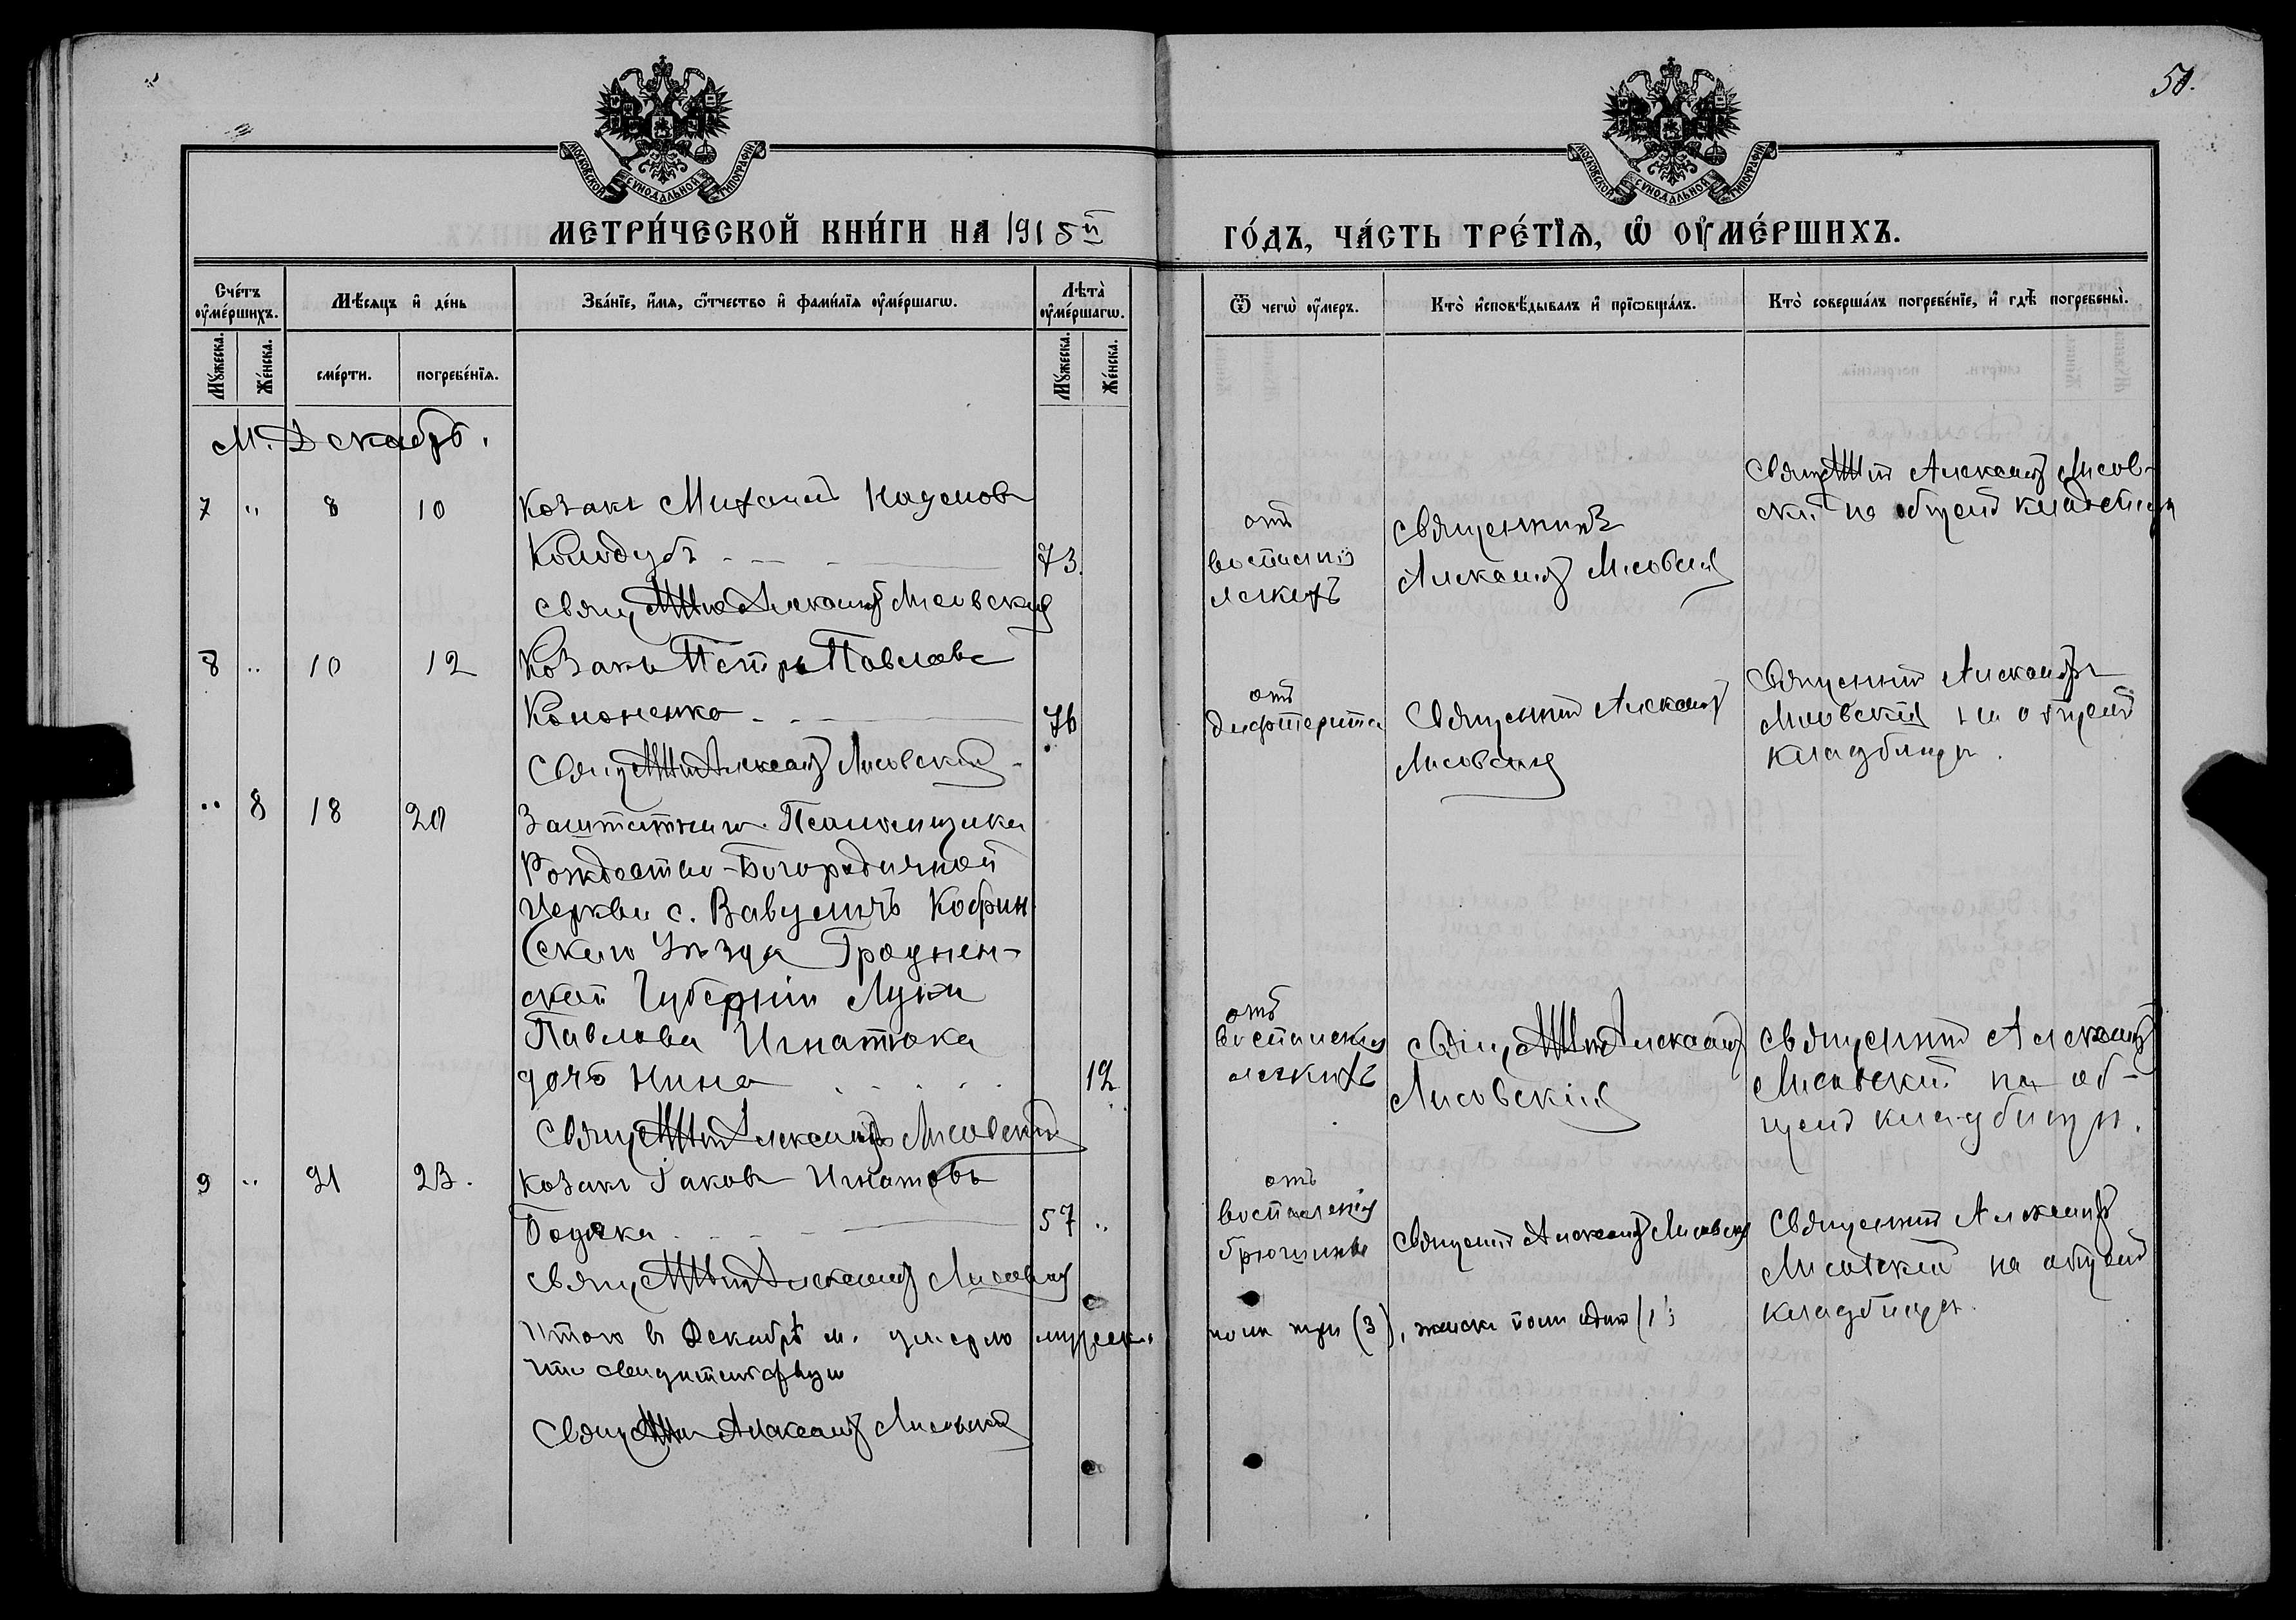 50.
МОСКОВСКОЙ СѴНОДАЛЬНОЙ ТИПОГРАФІИ
МОСКОВСКОЙ СѴНОДАЛЬНОЙ ТИПОГРАФІИ
МЕТРИ́ЧЕСКОЙ КНИ́ГИ НА 1915й
ГО́ДЪ, ЧА́СТЬ ТРЕ́ТІѦ, Ѡ ОУМЕ́РШИХЪ.
Сче́тъ оумéршихъ.
Мѣ́сяцъ и де́нь
Зва́нїе, и́мя, ѻ҆́тчество и фами́лїя оумéршагѡ.
Лѣта̀ оумéршагѡ.
Ѿ чегѡ̀ оу҆́меръ.
Кто̀ и҆сповѣ́дывалъ и҆ прїѡбща́лъ.
Кто̀ соверша́лъ погребе́нїе, и҆ гдѣ̀ погребены̀.
Му́жеска.
Же́нска.
сме́рти.
погребе́нїя.
Му́жеска.
Же́нска.
М. Декабрь.
7 " 8 10
Козакъ Михаилъ
Колодубъ
73.
Свящ Александръ Лисовскій
отъ
воспаленія
легкихъ
Священникъ
Александръ Лисовскій
Александръ Лисов-
скій на общемъ кладбищѣ
8 " 10 12
Козакъ Петръ Павловъ
Кононенко
76
Свящ Александръ Лисовскій
отъ
дифтерита
Священникъ Александръ
Лисовскій
Священникъ Александръ
Лисовскій на общемъ
кладбищѣ.
" 8 18 20
Заштатнаго Псаломщика
Рождество-Богородичной
Церкви с. Вавуличъ Кобрин
скаго Уѣзда Гроднен-
ской Губерніи Луки
Павлова Игнатюка
дочь Нина
12
Свящ Александръ Лисовскій
отъ
воспаленія
легкихъ
Свящ Александръ
Лисовскій
Священникъ Александръ
Лисовскій на об-
щемъ кладбищѣ.
9 " 21 23.
Козакъ Іаковъ Игнатовъ
Бодяка
57 "
Свящ Александръ Лисовскій
отъ
воспаленія
брюшины
Священникъ Александръ Лисовскій
Священникъ Александръ
Лисовскій на общемъ
кладбищѣ.
Итого въ Декабрѣ м. умерло мужеска
пола три (3), женска пола одна (1)
что свидѣтельствую
Свящ Александръ Лисовскій